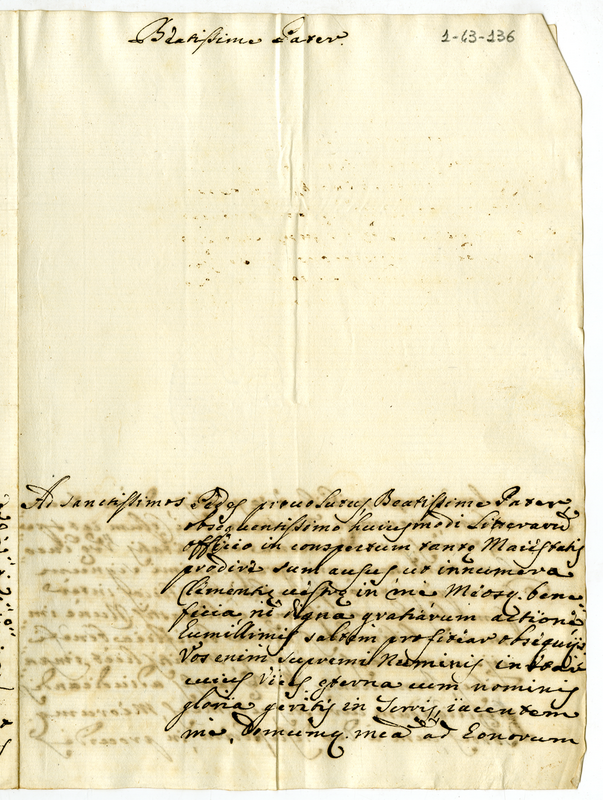 Beatissime Pater.
1-43-136
Ad Sanctissimos Pedes prouolutus Beatissime Pater
obsequentissimo huiusmodi Literarũ
officio in conspectum tantę Maiestatis
prodire sum ausus ut innumera
Clementię uestrę in me Meosq. bene
ficia ni digna gratiarum actione
humillimis saltem profitear obsequijs
Vos enim Supremi Numinis in
cuius Vices ęterna cum nominis
gloria geritis in Terris, iacentem
me, Domumq. meã ad Honorum